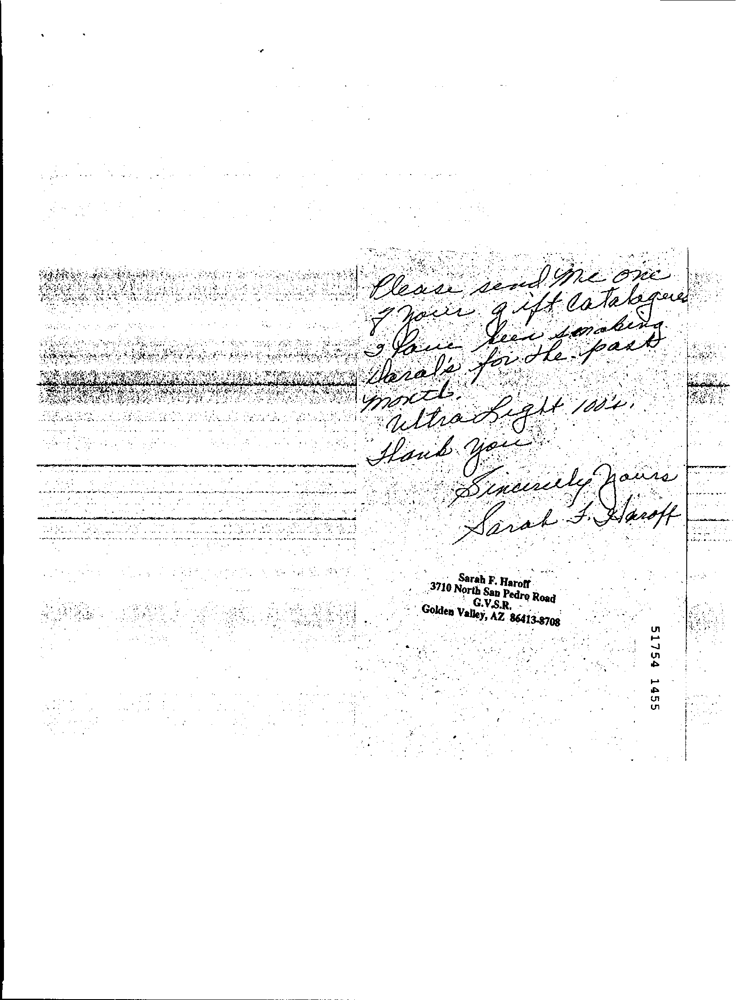 Please send me one
of your gift Catalagues
I have been smoking
Daral's for the past
month.
Ultra Light 100's.
Thank you
Sincerely yours
Sarah F. Haroff
Sarah F. Haroff
3710 North San Pedro Road
G.V.S.R.
Golden Valley, AZ 86413-8708
51754 1455